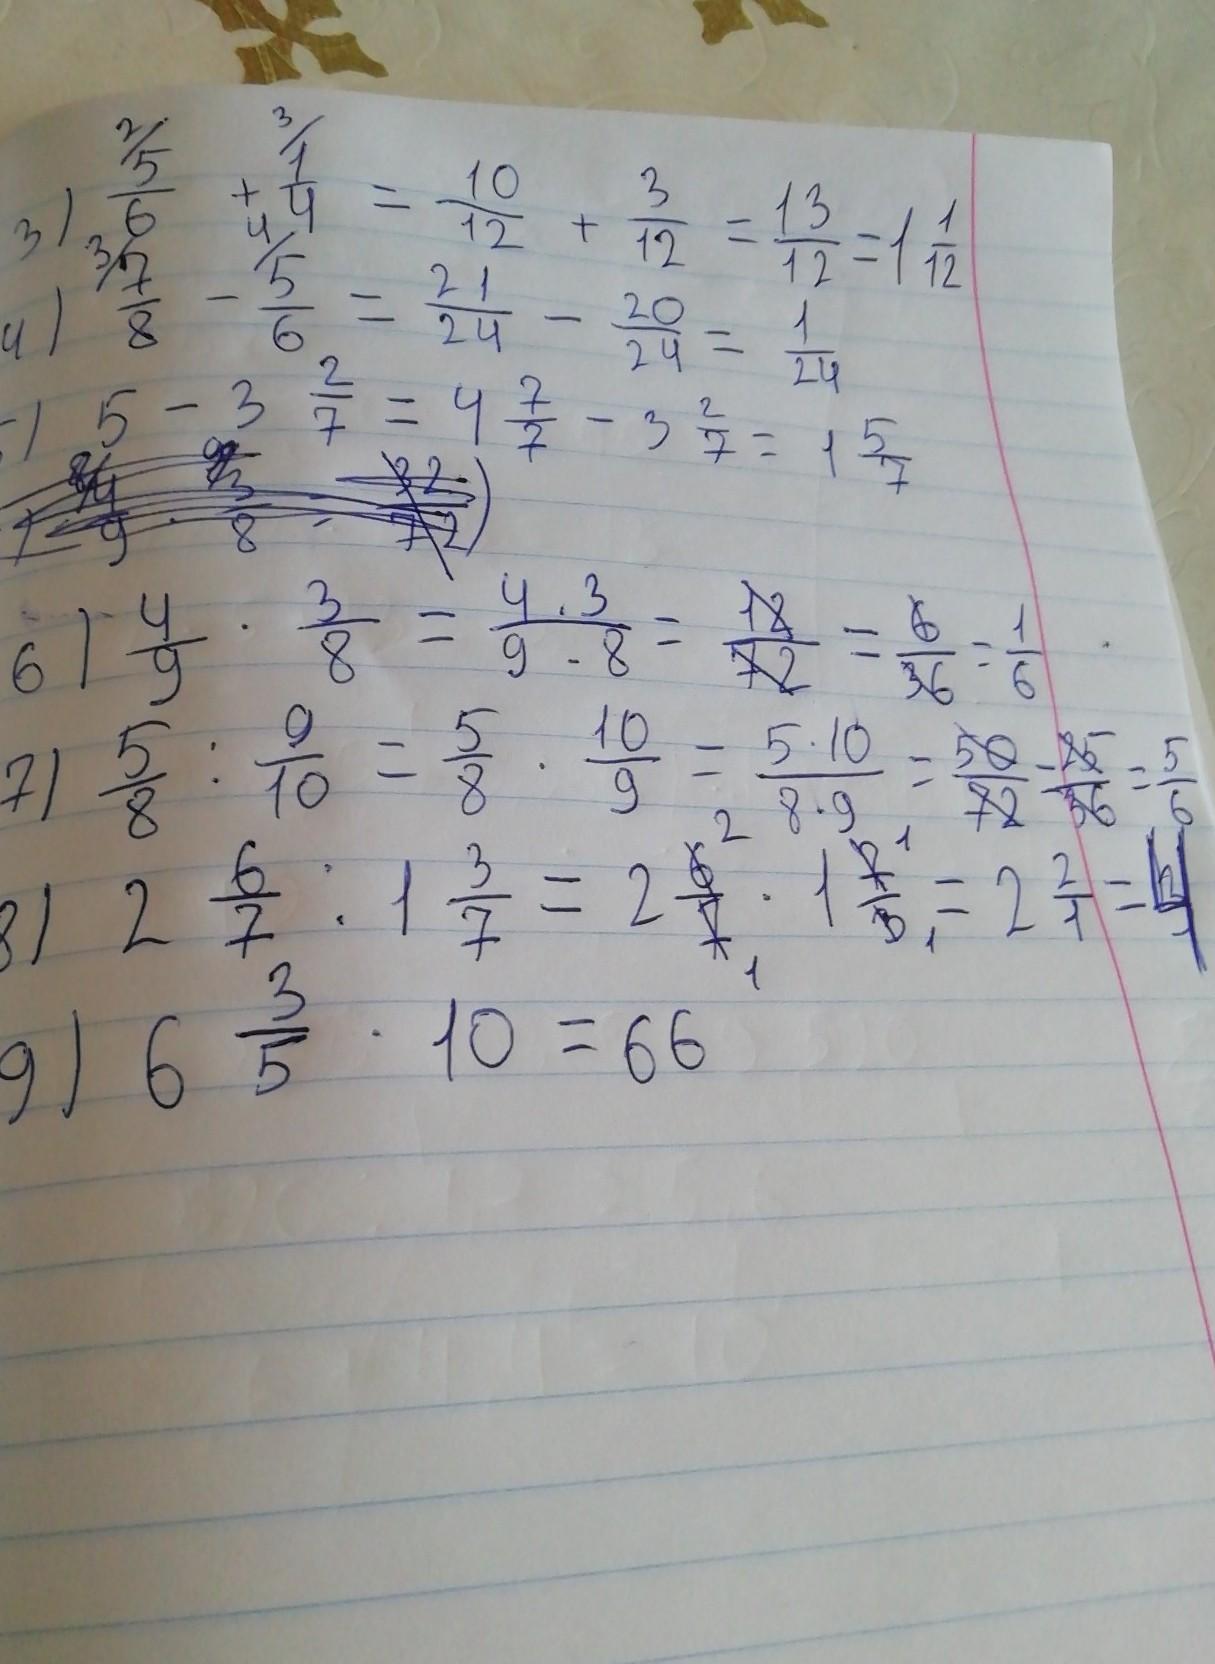 3) 2/ 5/6 + 3/ 1/4 = 10/12 + 3/12 = 13/12 = 1 1/12
4) 3/ 7/8 - 4/ 5/6 = 21/24 - 20/24 = 1/24
5 - 3 2/7 = 4 7/7 - 3 2/7 = 1 5/7
6) 4/9 · 3/8 = 4 · 3/9 · 8 = 12/72 = 6/36 = 1/6
7) 5/8 : 9/10 = 5/8 · 10/9 = 5·10/8·9 = 50/72 = 25/36 = 5/6
8) 2 6/7 : 1 3/7 = 2 6/7 2 1 · 1 7/3 1 1 = 2 2/1 =
9) 6 3/5 · 10 = 66